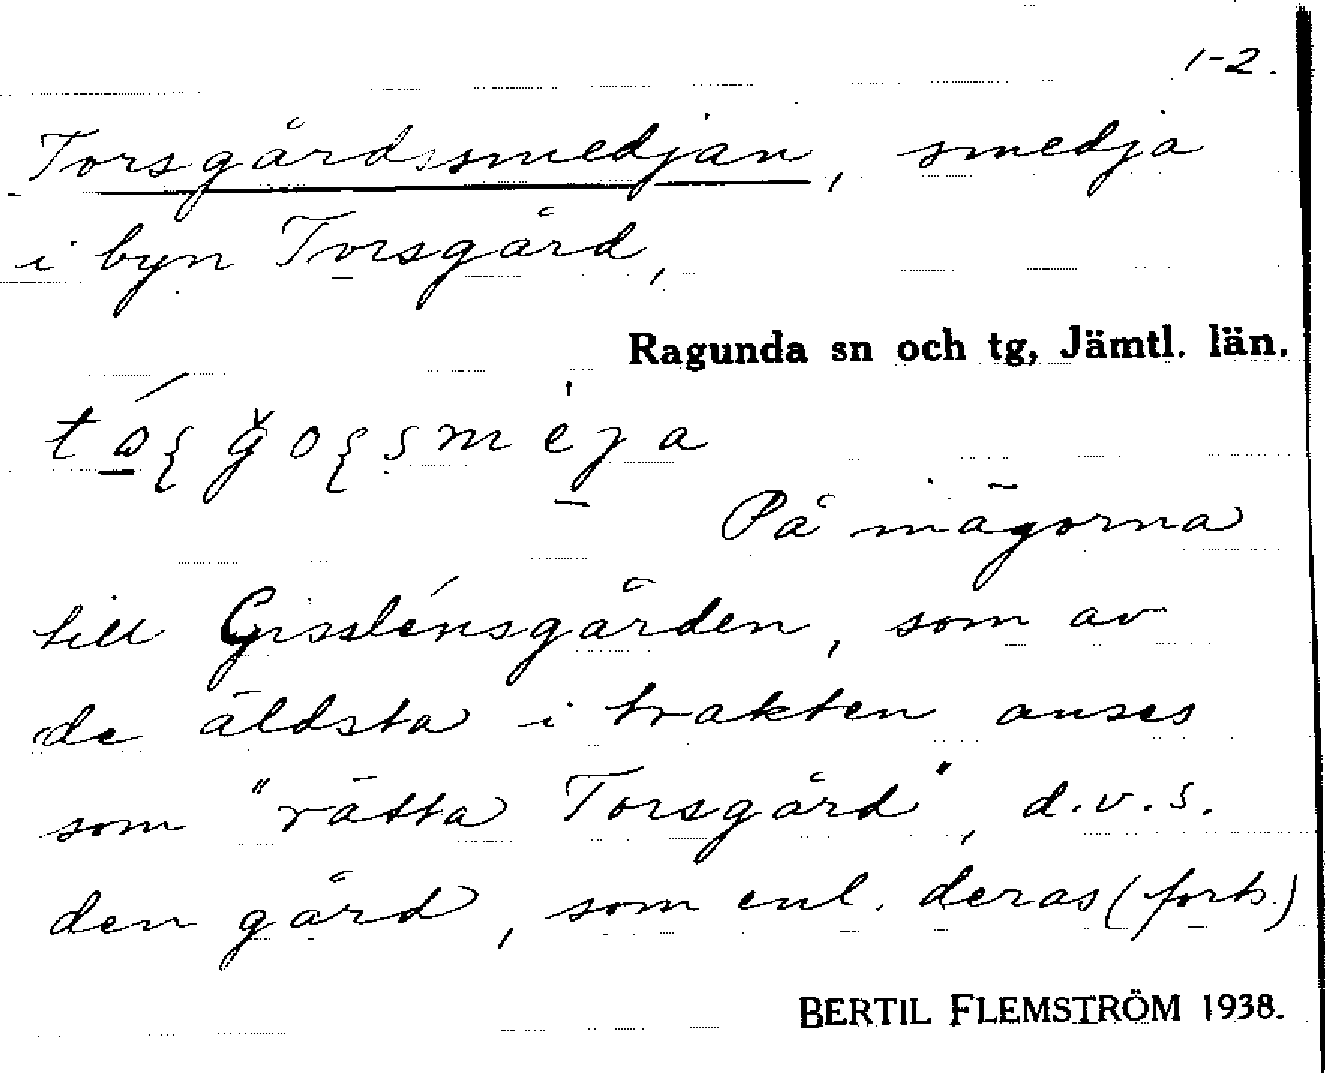 1-2.
Torsgårdssmedjan, smedja
i byn Torsgård,
Ragunda sn och tg, Jämtl. län.
På mägorna
till Gisslénsgården, som av
de äldsta i trakten anses
som "rätta Torsgård", d.v.s.
den gård, som enl. deras (forts.)
BERTIL FLEMSTRÖM 1938.